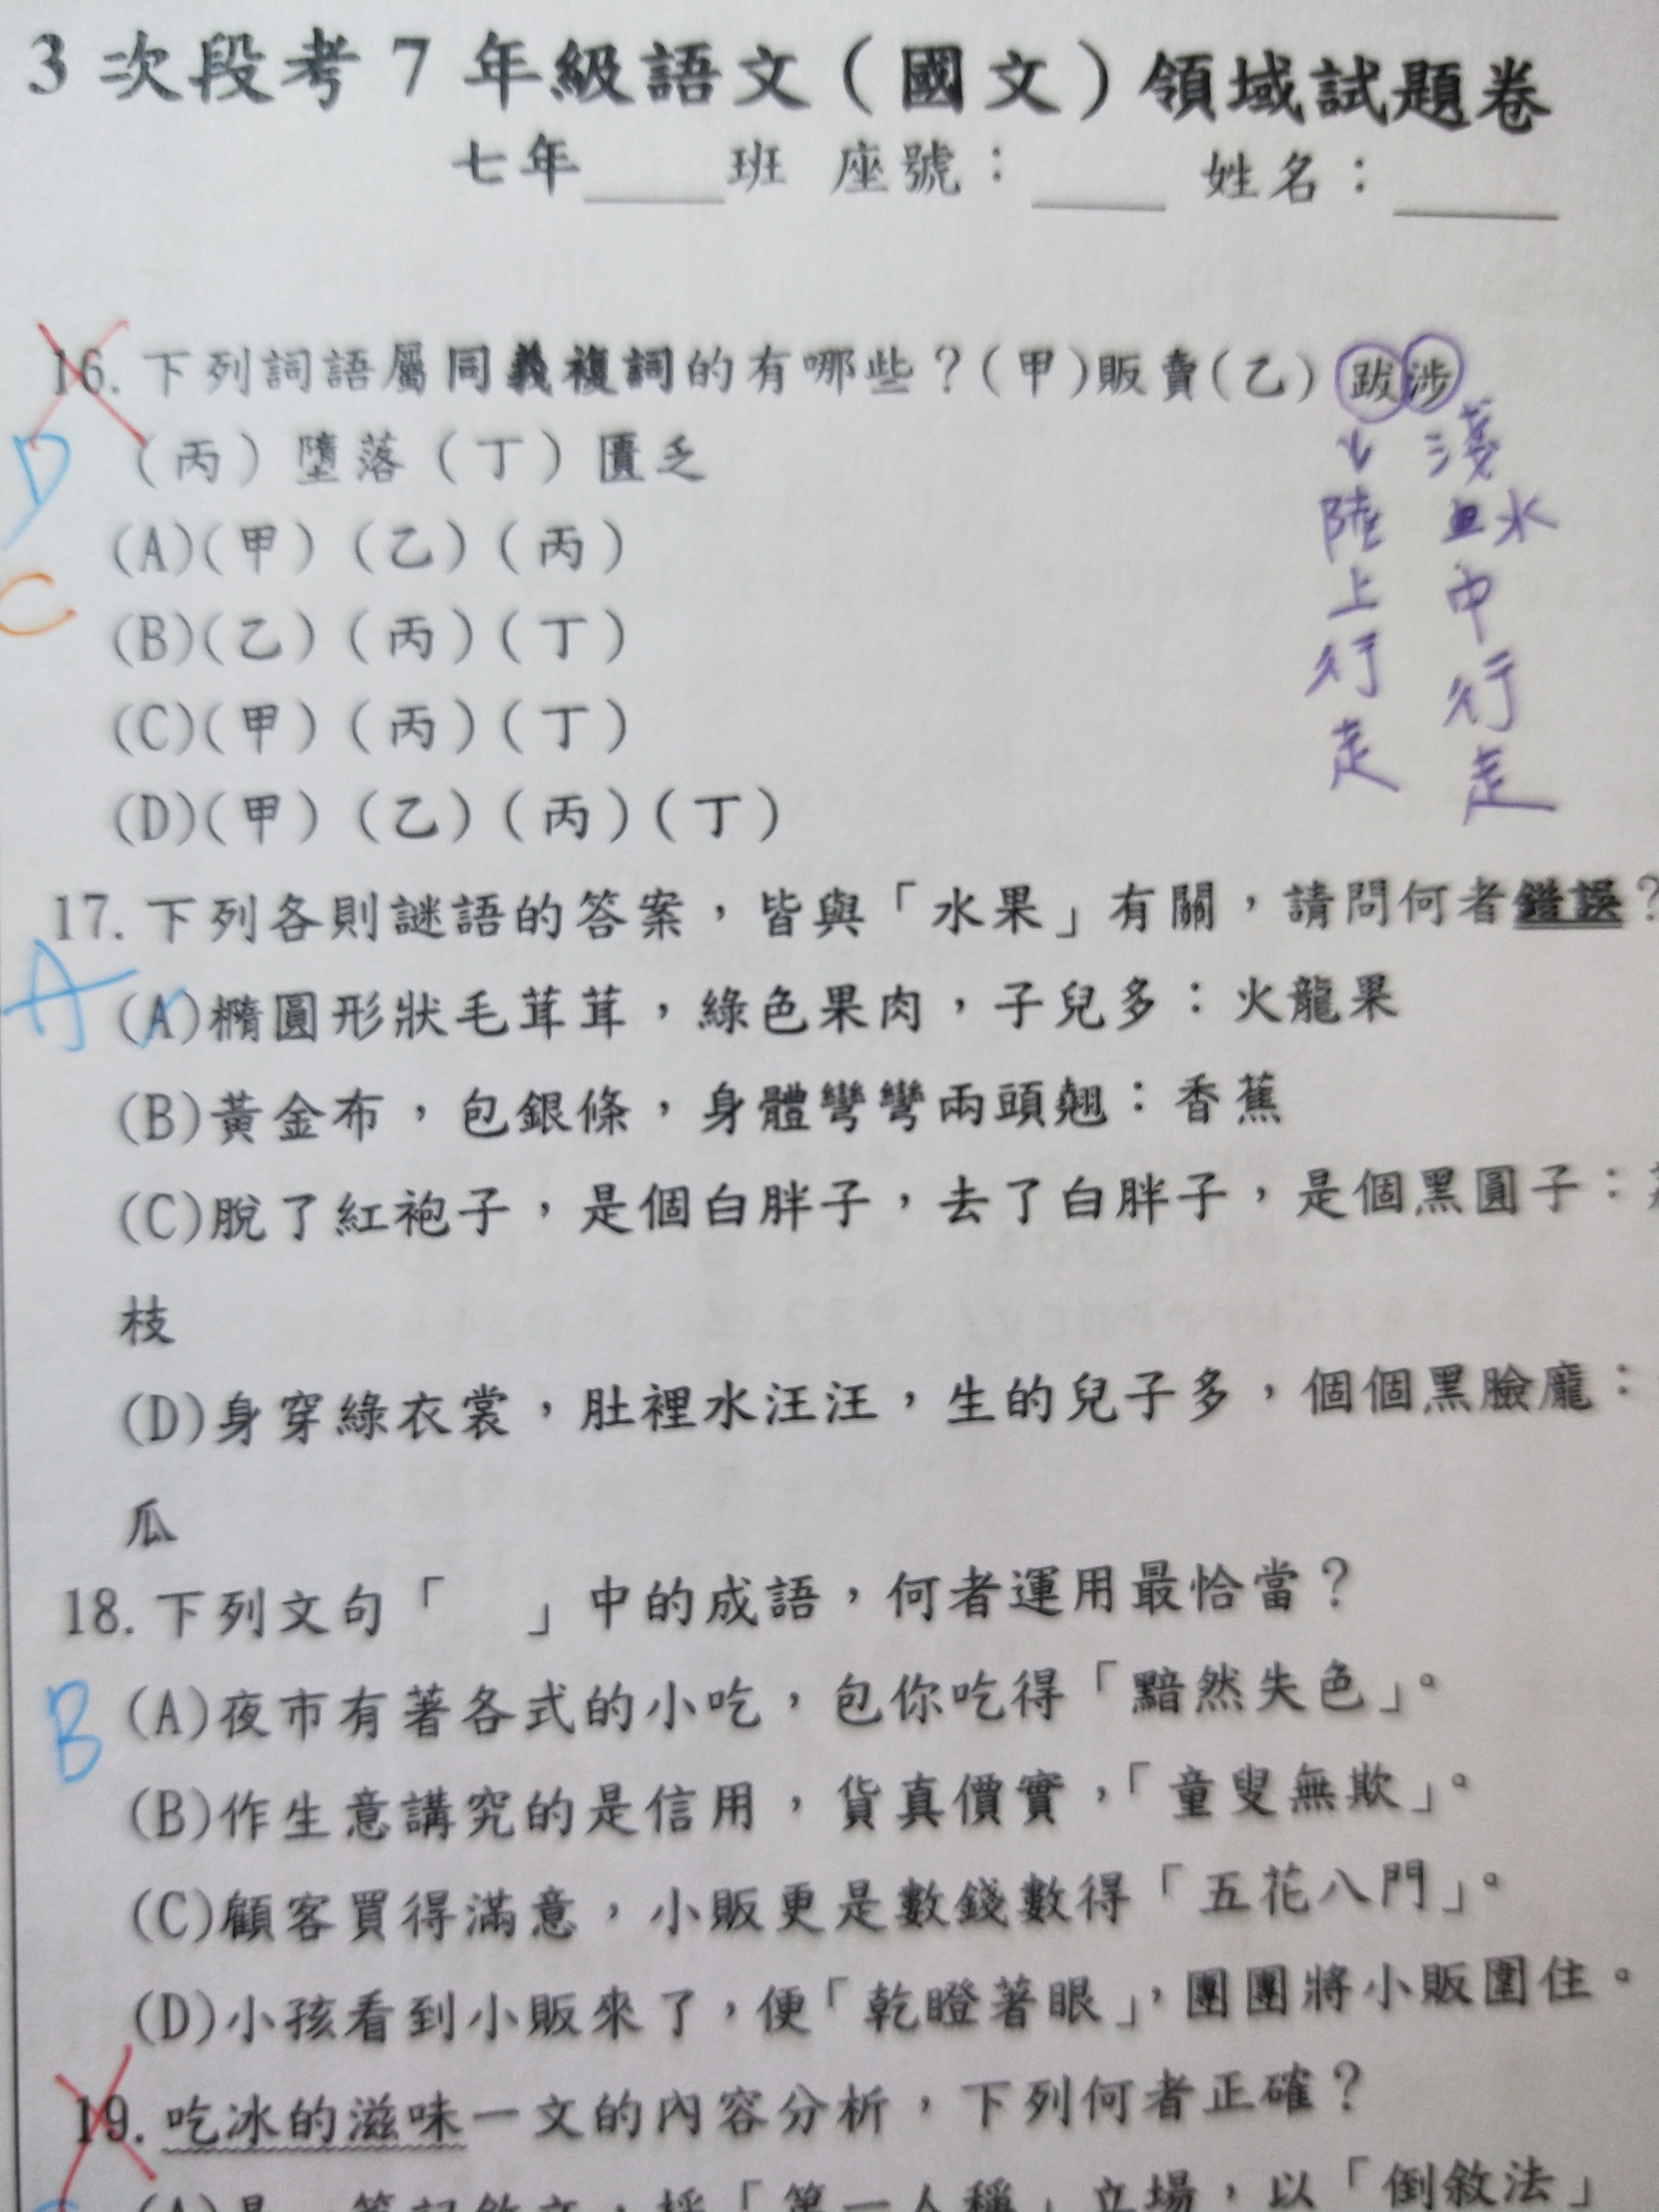 3 次段考 7 年級語文（國文）領域試題卷
七年____班 座號：____ 姓名：____
16. 下列詞語屬同義複詞的有哪些？(甲)販賣(乙) 跋涉
（丙）墮落（丁）匱乏
D
(A)(甲)（乙）(丙)
C
(B)(乙)（丙）(丁)
(C)(甲)（丙）(丁)
(D)(甲)（乙）(丙)(丁)
陸上行走
淺水中行走
17. 下列各則謎語的答案，皆與「水果」有關，請問何者錯誤？
A
(A)橢圓形狀毛茸茸，綠色果肉，子兒多：火龍果
(B)黃金布，包銀條，身體彎彎兩頭翹：香蕉
(C)脫了紅袍子，是個白胖子，去了白胖子，是個黑圓子：
枝
(D)身穿綠衣裳，肚裡水汪汪，生的兒子多，個個黑臉龐：
瓜
18. 下列文句「　」中的成語，何者運用最恰當？
B
(A)夜市有著各式的小吃，包你吃得「黯然失色」。
(B)作生意講究的是信用，貨真價實，「童叟無欺」。
(C)顧客買得滿意，小販更是數錢數得「五花八門」。
(D)小孩看到小販來了，便「乾瞪著眼」，團團將小販圍住。
19. 吃冰的滋味一文的內容分析，下列何者正確？
(A)是一篇記敘文，採「第一人稱」立場，以「倒敘法」